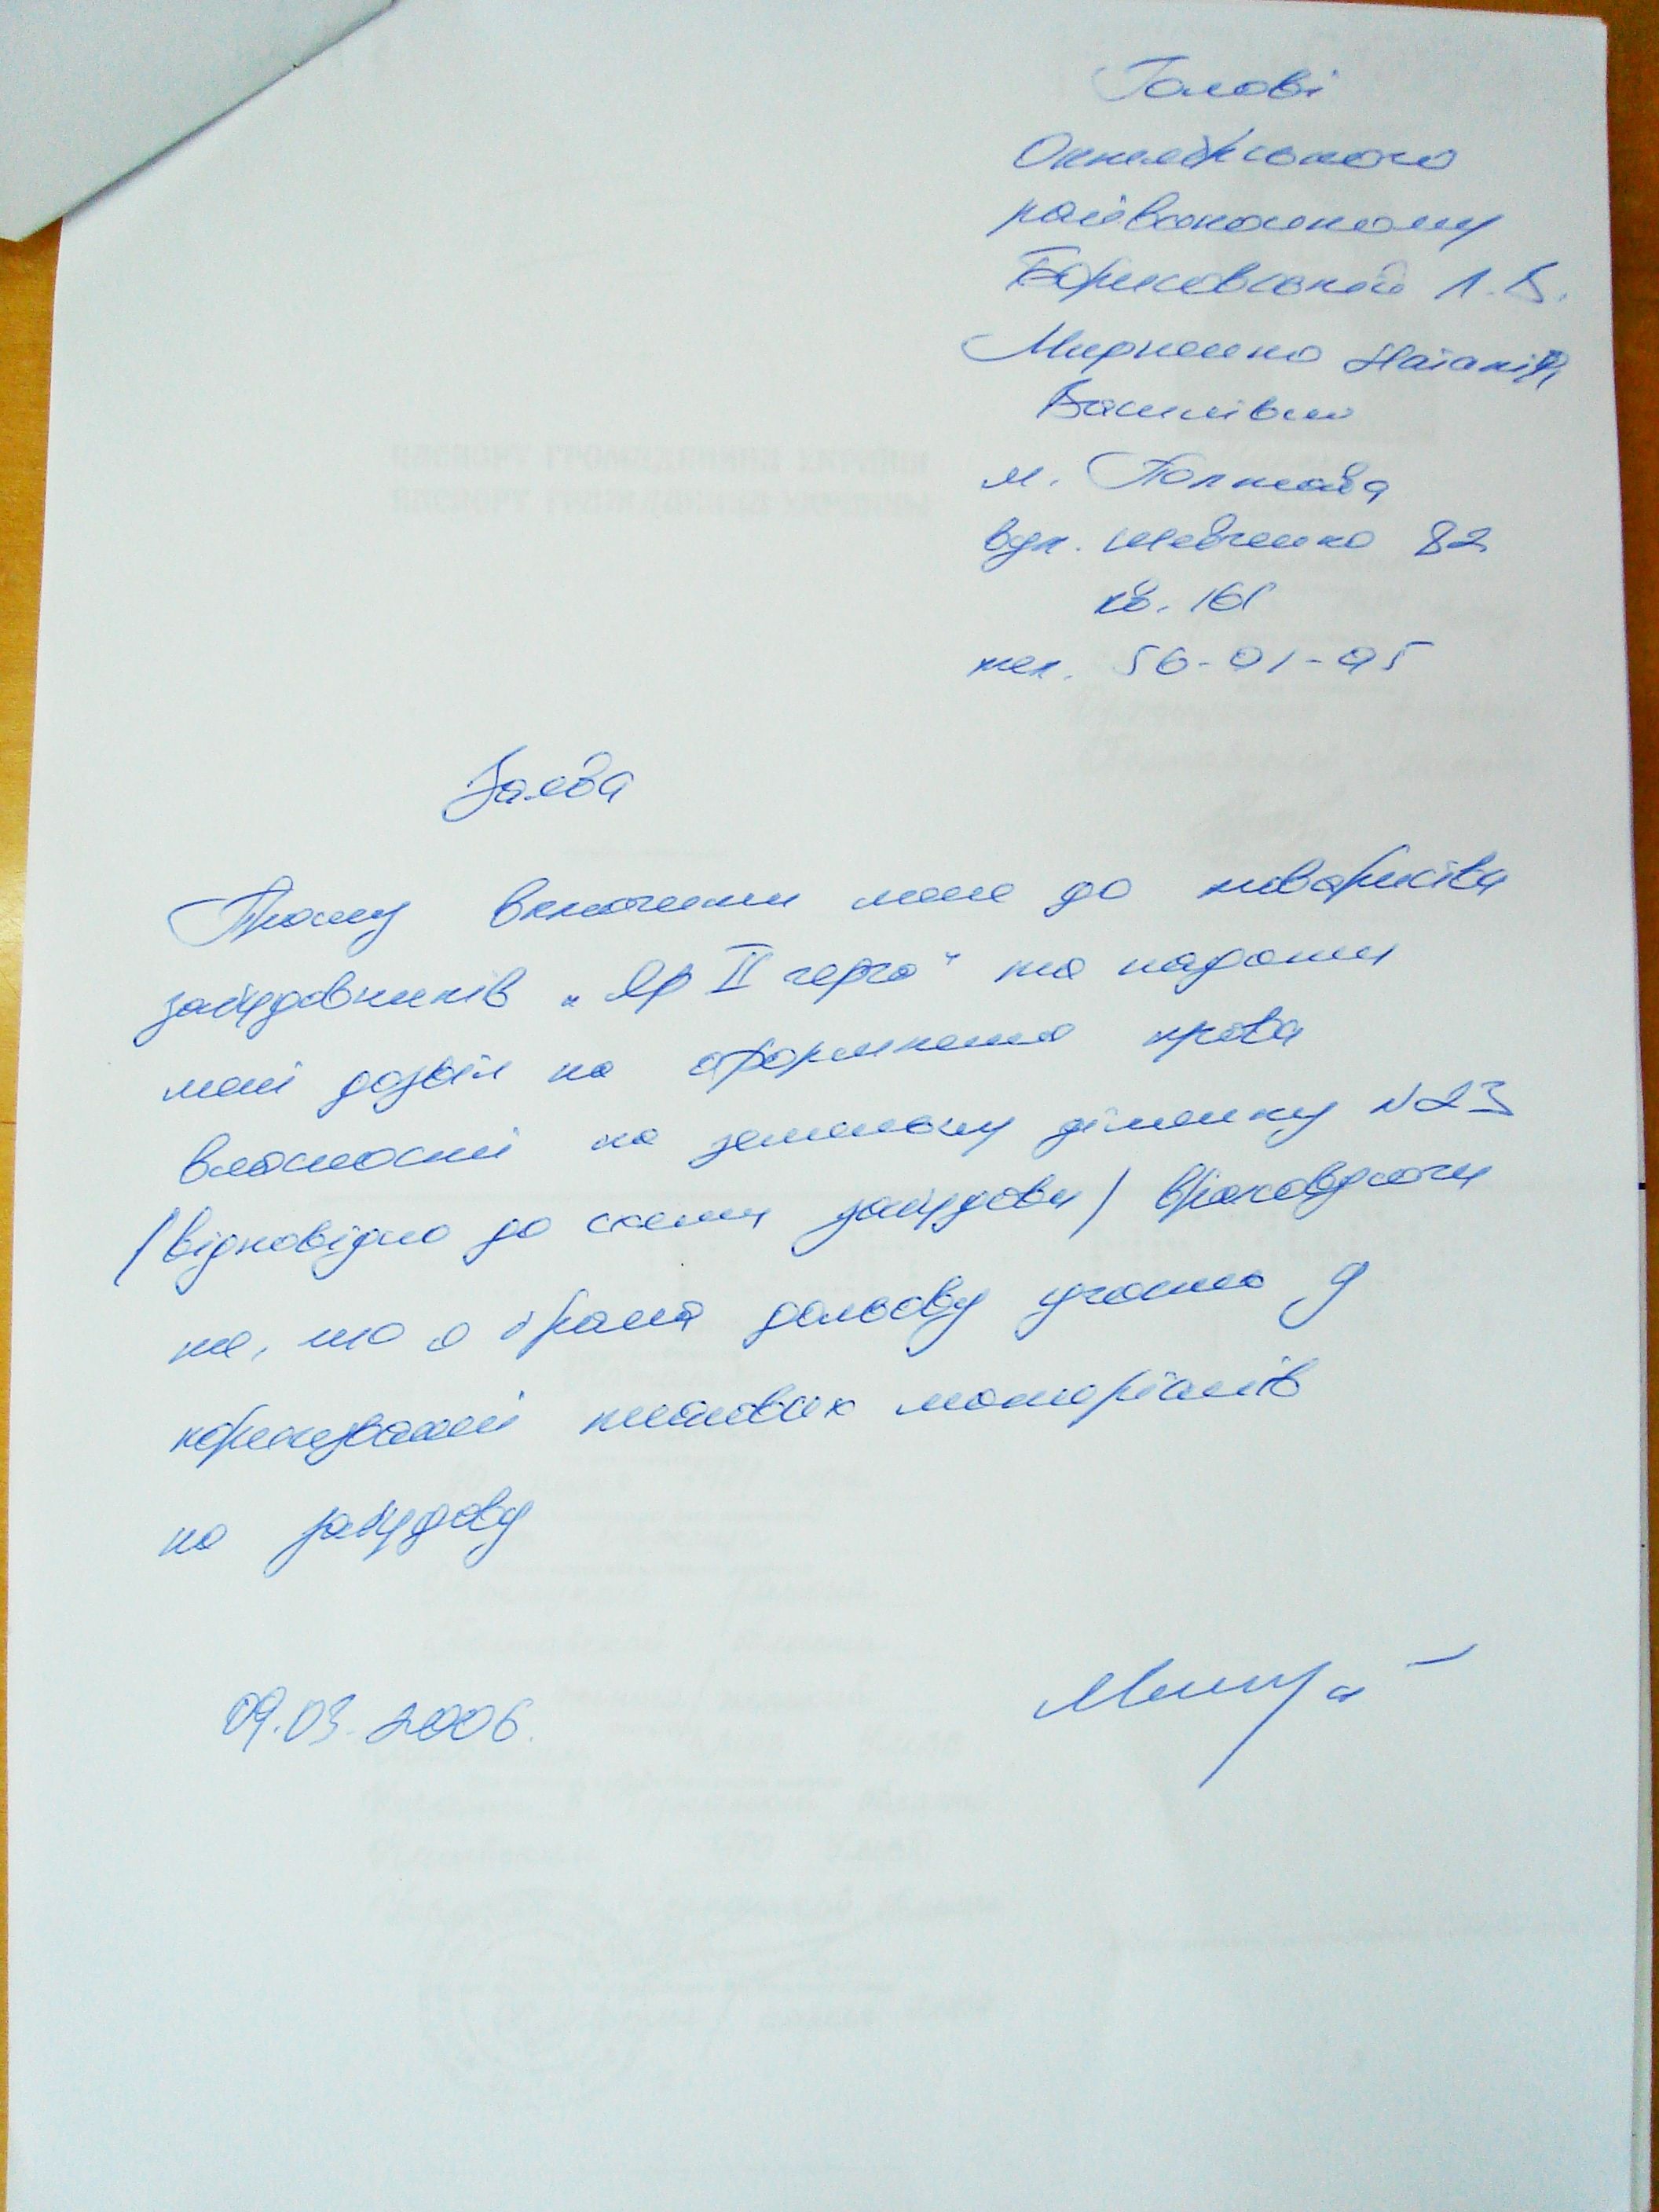 Голові
Октябрського
райвиконкому
Борисовській Л.В.
Мирненко Наталії
Василівни
м. Полтава
вул. Шевченко 82
кв. 161
тел. 56-01-95
Заява
Прошу включити мене до товариства
забудовників „Яр II черга" та надати
мені дозвіл на оформлення права
власності на земельну ділянку N23
/відповідно до схеми забудови/ враховуючи
те, що я брала дольову участь у
коригуванні планових матеріалів
на забудову
09.03.2006.
ПАСПОРТ ГРОМАДЯНИНА УКРАЇНИ
ПАСПОРТ ГРАЖДАНИНА УКРАИНЫ